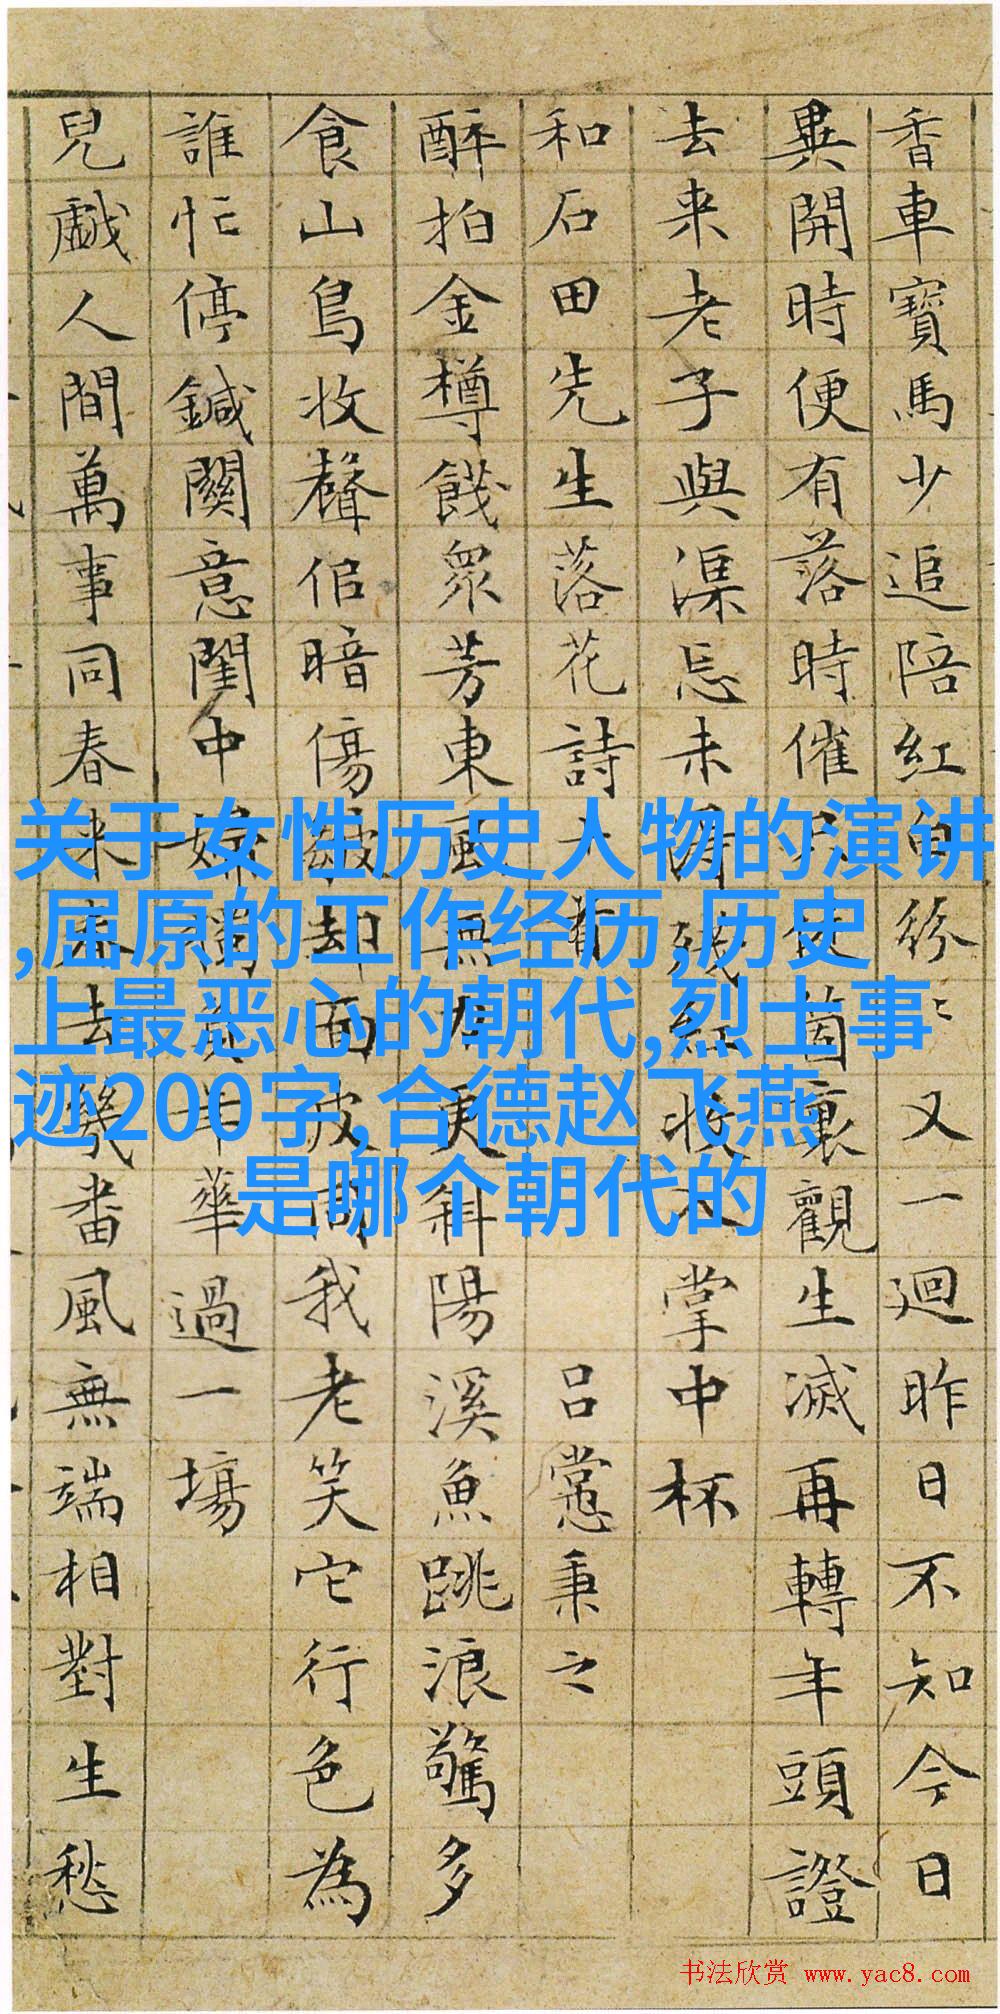 香車寶馬少追陪紅白紛〻又一迴昨日不知今日
異開時便有落時催箇裏觀生滅再轉年頭證
去来老子與渠忘未殘紅入掌中杯
和石田先生落花詩十首 呂㦂秉之
醉拍金樽餞衆芳東風無力更斜陽溪魚跳浪驚多
食山鳥收聲佀暗傷皺却面皮我老笑它行色為
誰忙停鍼關意閨中婦獨年華過一場
兒戲人間萬事同春来春去幾番風無端相對生愁
关于女性历史人物的演讲
,屈原的工作经历,历史
上最恶心的朝代,烈士事
迹200字,合德赵飞燕
是哪个朝代的
书法欣赏 www.yac8.com